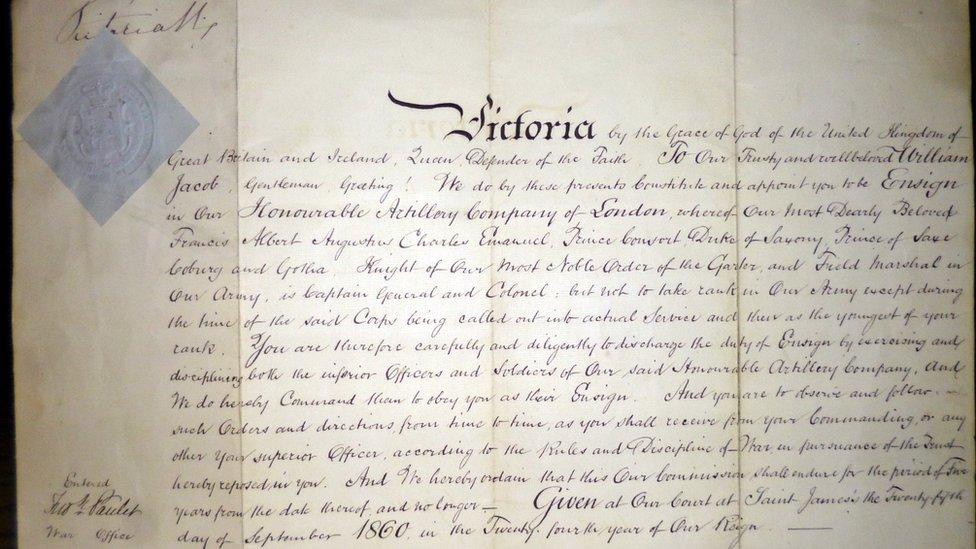 Victoria R
Victoria by the Grace of God of the United Kingdom of
Great Britain and Ireland, Queen, Defender of the Faith, To Our Trusty and wellbeloved William
Jacob, Gentleman, Greeting! We do by these presents Constitute and appoint you to be Ensign
in Our Honourable Artillery Company of London, whereof Our Most Dearly Beloved
Francis Albert Augustus Charles Emanuel, Prince Consort, Duke of Saxony, Prince of Saxe
Coburg and Gotha, Knight of Our Most Noble Order of the Garter, and Field Marshal in
Our Army, is Captain General and Colonel; but not to take rank in Our Army except during
the time of the said Corps being called out into actual Service and then as the youngest of your
rank. You are therefore carefully and diligently to discharge the duty of Ensign by exercising and
disciplining both the inferior Officers and Soldiers of Our said Honourable Artillery Company, And
We do hereby Command them to obey you as their Ensign. And you are to observe and follow
such Orders and directions, from time to time, as you shall receive from your Commanding, or any
other your superior Officer, according to the Rules and Discipline of War, in pursuance of the Trust
hereby reposed in you. And We hereby ordain that this Our Commission shall endure for the period of Five
years from the date thereof and no longer — Given at Our Court at Saint James's the Twenty fifth
day of September 1860, in the Twenty fourth year of Our Reign. —
Entered
Paulet
War Office